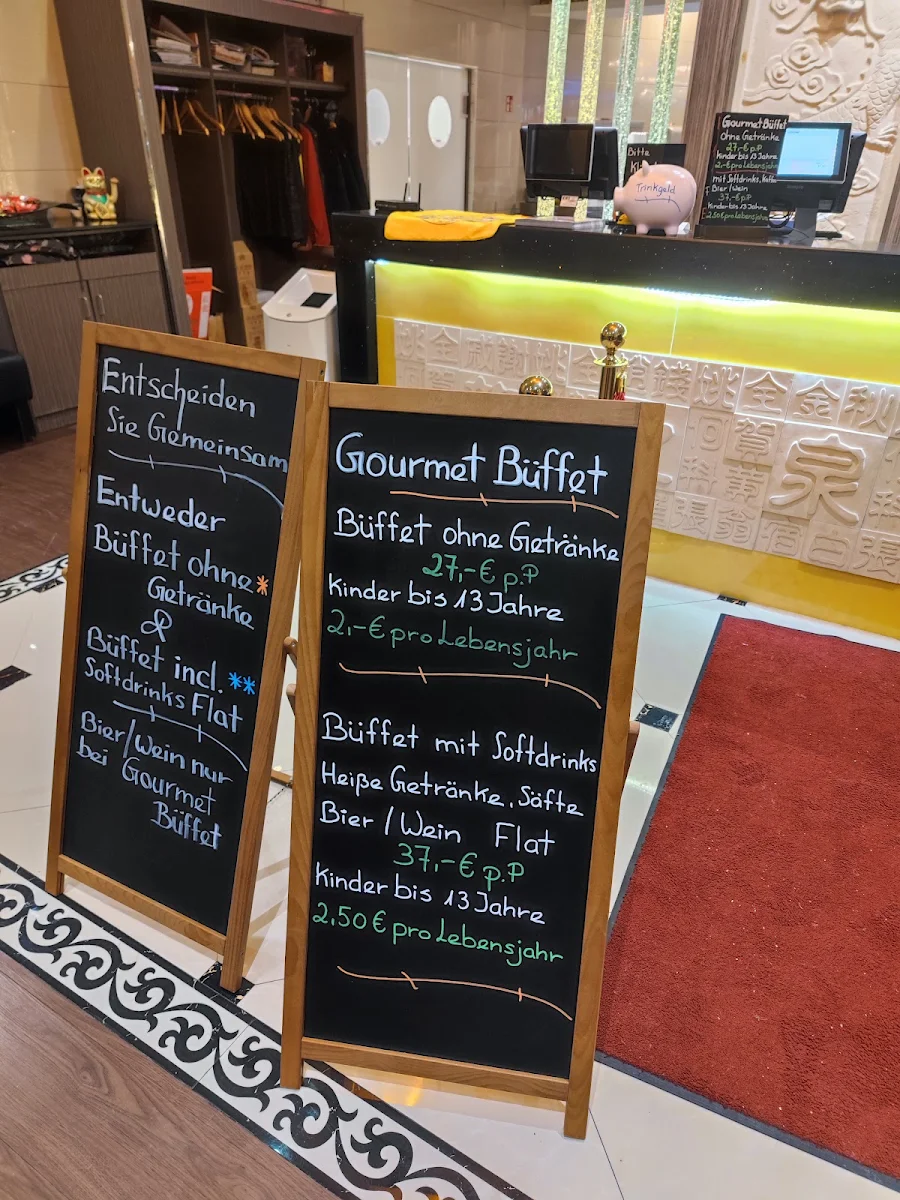 Entscheiden
Sie Gemeinsam
Entweder
Büffet ohne*
Getränke
&
Büffet incl.**
Softdrinks Flat
Bier/Wein nur
bei Gourmet
Büffet
Gourmet Büffet
Büffet ohne Getränke
27,-€ p.P
Kinder bis 13 Jahre
2,-€ pro Lebensjahr
Büffet mit Softdrinks
Heiße Getränke, Säfte
Bier / Wein Flat
37,-€ p.P
Kinder bis 13 Jahre
2,50 € pro Lebensjahr
Bitte
Trinkgeld
Gourmet Büffet
Ohne Getränke
27,-€ p.P
Kinder bis 13 Jahre
2,-€ pro Lebensjahr
mit Softdrinks,
Bier/Wein
37,-€ p.P
Kinder bis 13 Jahre
2,50€ pro Lebensjahr
全金秋
泉